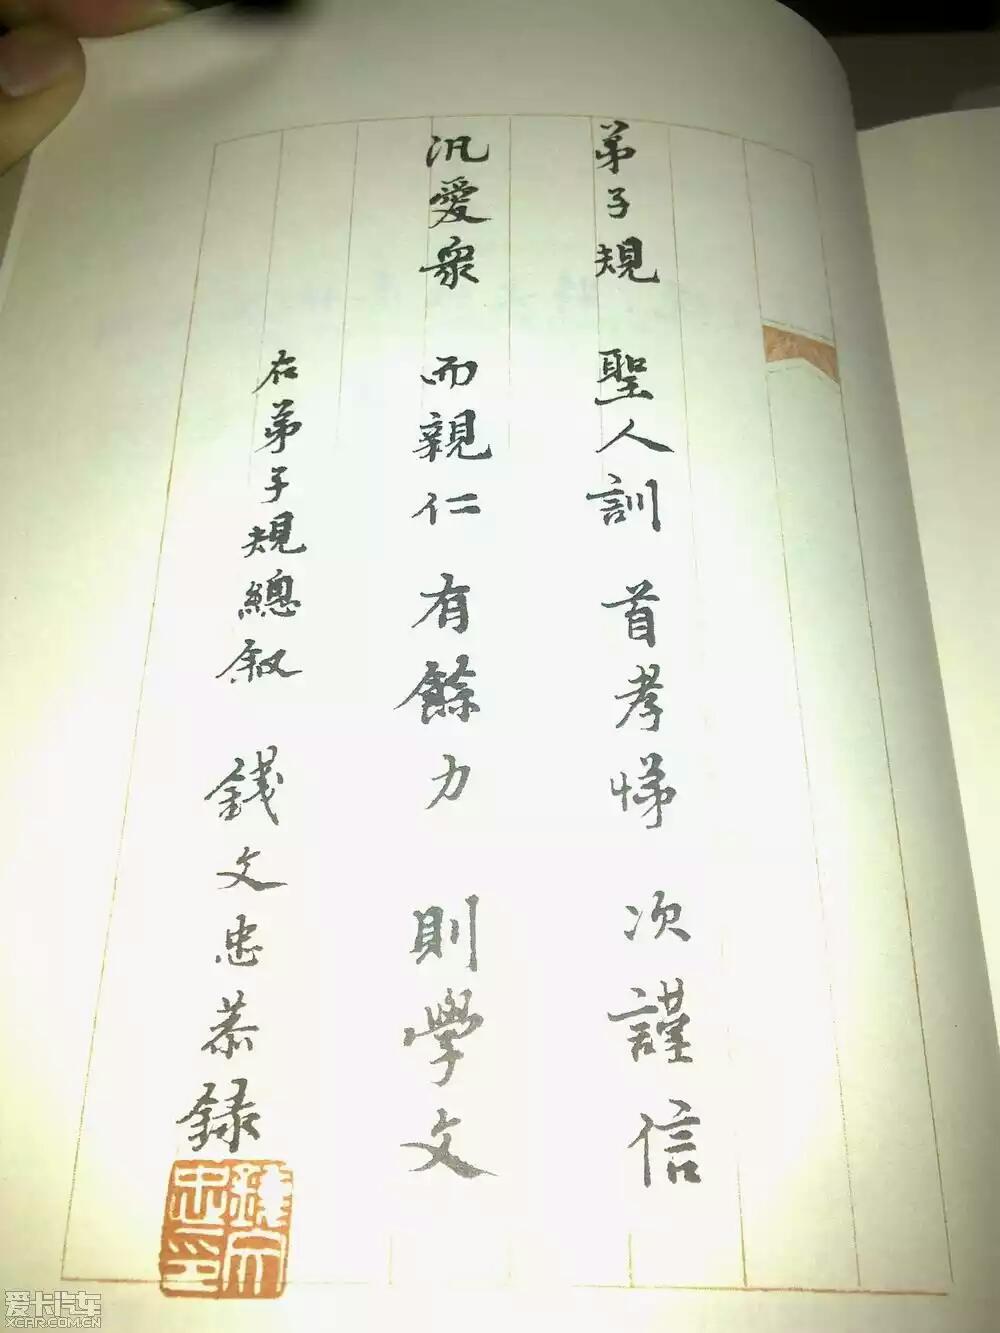 弟子規 聖人訓 首孝悌 次謹信
汎愛衆 而親仁 有餘力 則學文
右弟子規總叙 錢文忠恭録
錢文忠印
爱卡汽车
XCAR.COM.CN